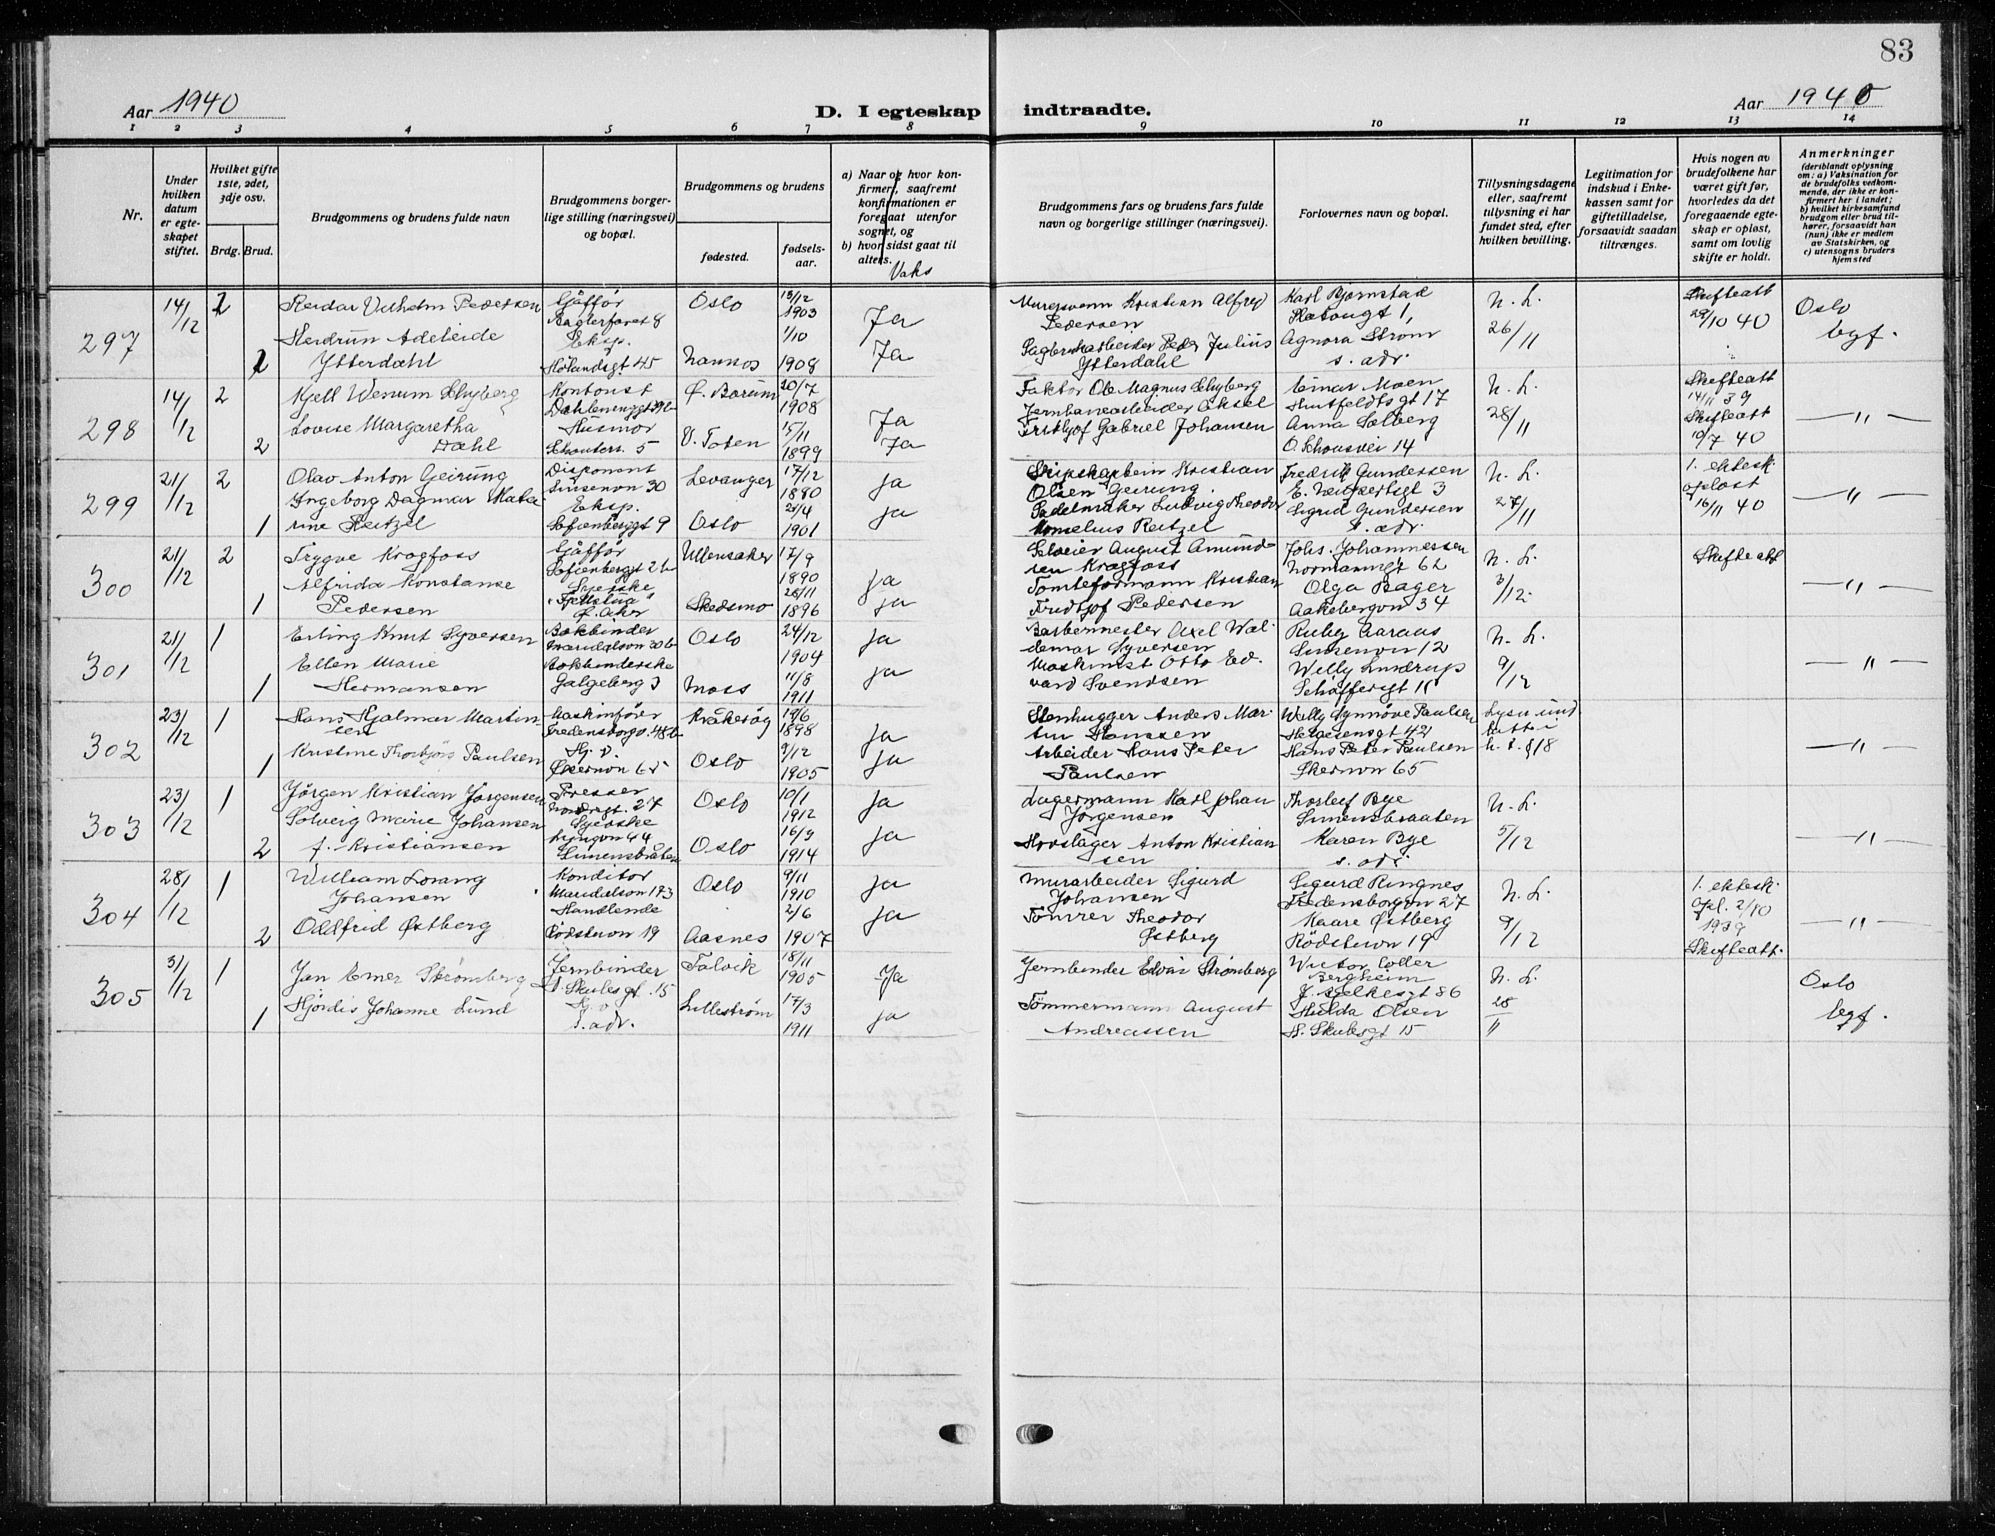 83
Aar 1940
D. I egteskap indtraadte.
Aar 1940
1 2 3 4 5 6 7 8 9 10 11 12 13 14
Nr.
Under hvilken datum er egteskapet stiftet.
Hvilket gifte 1ste, 2det, 3dje osv.
Brdg. Brud.
Brudgommens og brudens fulde navn
Brudgommens borgerlige stilling (næringsvei) og bopæl.
Brudgommens og brudens
fødested.
fødselsaar.
a) Naar og hvor konfirmert, saafremt konfirmationen er foregaat utenfor sognet, og
b) hvor sidst gaat til alters.
Vaks
Brudgommens fars og brudens fars fulde navn og borgerlige stillinger (næringsvei).
Forlovernes navn og bopæl.
Tillysningsdagene eller, saafremt tillysning ei har fundet sted, efter hvilken bevilling.
Legitimation for indskud i Enkekassen samt for giftetilladelse, forsaavidt saadan tiltrænges.
Hvis nogen av brudefolkene har været gift før, hvorledes da det foregaaende egteskap er opløst, samt om lovlig skifte er holdt.
Anmerkninger
(deriblandt oplysning om: a) Vaksination for de brudefolks vedkommende, der ikke er konfirmert her i landet; b) hvilket kirkesamfund brudgom eller brud tilhører, forsaavidt han (hun) ikke er medlem av Statskirken, og c) utensogns bruders hjemsted
297 14/12 2 Reidar Vilhelm Pedersen Sjåffør Oslo 13/12 1903 Ja
Kristian Alfred Pedersen Karl Bjørnstad 1, N. L. 26/11 Skifteatt 29/10 40 Oslo bgf.
Heidrun Adeleide Ytterdahl Eksp. Hølandsgt 45 Namsos 1/10 1908 Ja
Peder Julius Ytterdahl Agnora Strøm s. adr.
298 14/12 2 Kjell Wenum Thyberg Kontorist Ø. Bærum 20/7 1908 Ja
Faktor Ole Magnus Thyberg Einar Moen Huitfeldtsgt 17 N. L. 28/11 Skifteatt 14/11 39 — " —
2 Lovise Margaretha Dæhl Husmor 5 V. Toten 15/11 1899 Ja
Jernbanearbeider Aksel Frithjof Gabriel Johansen Anna Solberg O. Schousvei 14 Skifteatt 10/7 40
299 21/12 2 Olav Anton Geirung Disponent Sinsenvn 30 Levanger 17/12 1880 ja
Kristian Olsen Geirung Fredrik Gundersen E. 3 N. L. 27/11 1. ektesk. opløst 16/11 40 — " —
1 Ingeborg Dagmar Katarine Reitzel Eksp. Sofienberggt 9 Oslo 21/4 1901 ja
Sadelmaker Ludvig Theodor Kornelius Reitzel Sigrid Gundersen s. adr.
300 21/12 2 Trygve Kragfoss Sjåffør Sofienberggt 2 b Ullensaker 17/9 1890 ja
August Amundsen Kragfoss Johs. Johannessen Normannsgt 62 N. L. 3/12 Skifteatt — " —
1 Alfrida Konstanse Pedersen Syerske Ø. Aker Skedsmo 28/11 1896 ja
Tomteformann Kristian Fridtjof Pedersen Olga Bager Aakebergvn 34
301 21/12 1 Erling Knut Syversen Bokbinder Maridalsvn 30 b Oslo 24/12 1904 ja
Barbermester Axel Waldemar Syversen Ruby Aaraas Sinsenvn 12 N. L. 9/12 — " —
1 Ellen Marie Hermansen Bokbinderske Galgeberg 3 Moss 11/8 1911 ja
Maskinist Otto Edvard Svendsen Willy Lundrup Schäffersgt 11
302 23/12 1 Hans Hjalmar Martinsen Maskinfører Fredensborgv. 48b Kråkerøy 19/6 1898 ja
Stenhugger Anders Martin Hanssen Wally Synnøve Paulsen Helgesensgt 42 — " —
1 Kristine Thorbjørg Paulsen Hj. v. Økernvn 65 Oslo 9/12 1905 ja
Arbeider Hans Peter Paulsen Hans Peter Paulsen Økernvn 65
303 23/12 1 Jørgen Kristian Jørgensen Presser 27 Oslo 10/1 1912 ja
Lagermann Karl Johan Jørgensen Thorleif Bye Simensbraaten N. L. 5/12 — " —
2 Solveig Marie Johansen f. Kristiansen Syerske Lyngvn 44 Simensbråten Oslo 16/9 1914 ja
Hovslager Anton Kristiansen Karen Bye s. adr.
304 28/12 1 William Lorang Johansen Konditor Maridalsvn 173 Oslo 9/11 1910 ja
Murarbeider Sigurd Johansen Sigurd Ringnes Fredensborgvn 27 N. L. 9/12 1. ektesk. opl. 2/10 1939 Skifteatt. — " —
2 Oddfrid Østberg Handlende Rödstuvn 19 Aasnes 2/6 1907 ja
Tømrer Theodor Østberg Kaare Østberg Rödstuvn 19
305 31/12 1 Jan Emer Strømberg Jernbinder H. Skulesgt. 15 Talvik 18/11 1905 Ja
Jernbinder Edvar Strømberg Victor Coller Bergheim 86 N. L. 28/11 Oslo bgf.
1 Hjördis Johanne Lund Hj. v. s. adr. Lilleström 17/3 1911 ja
Tömmermann August Andreassen Hulda Olsen H. Skulesgt 15